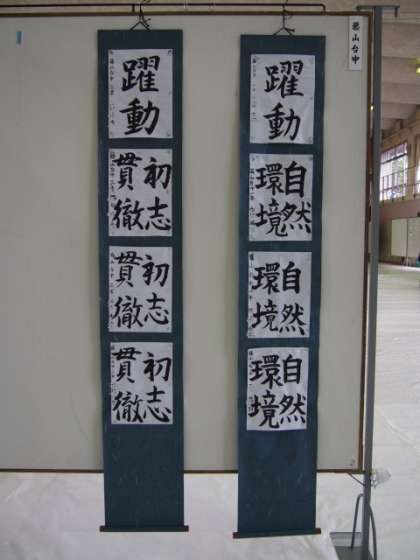 躍動
初志
貫徹
初志
貫徹
初志
貫徹
躍動
自然
環境
自然
環境
自然
環境